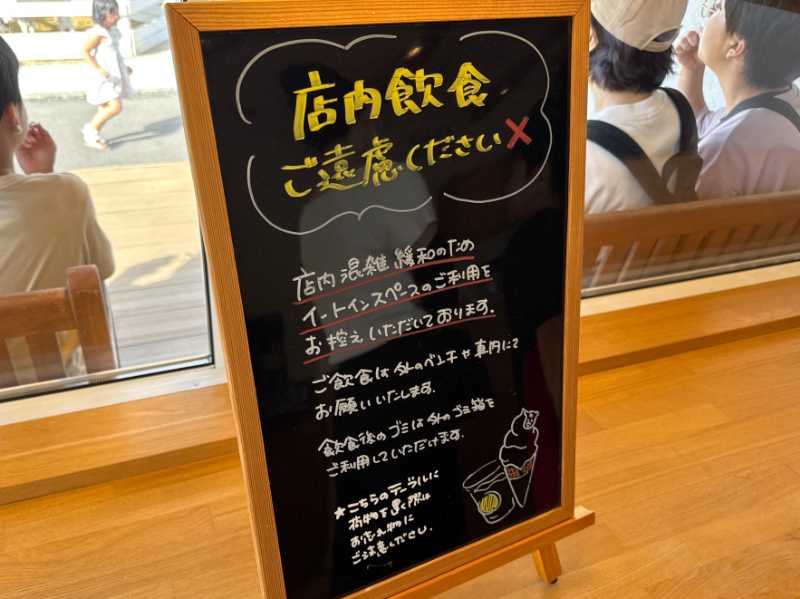 店内飲食
ご遠慮ください×
店内混雑緩和のため
イートインスペースのご利用を
お控えいただいております。
ご飲食は外のベンチや真向にて
お願いいたします。
飲食後のゴミは外のゴミ箱を
ご利用していただけます。
★こちらのテーブルに
荷物を置く際は
お忘れ物に
ご注意ください。